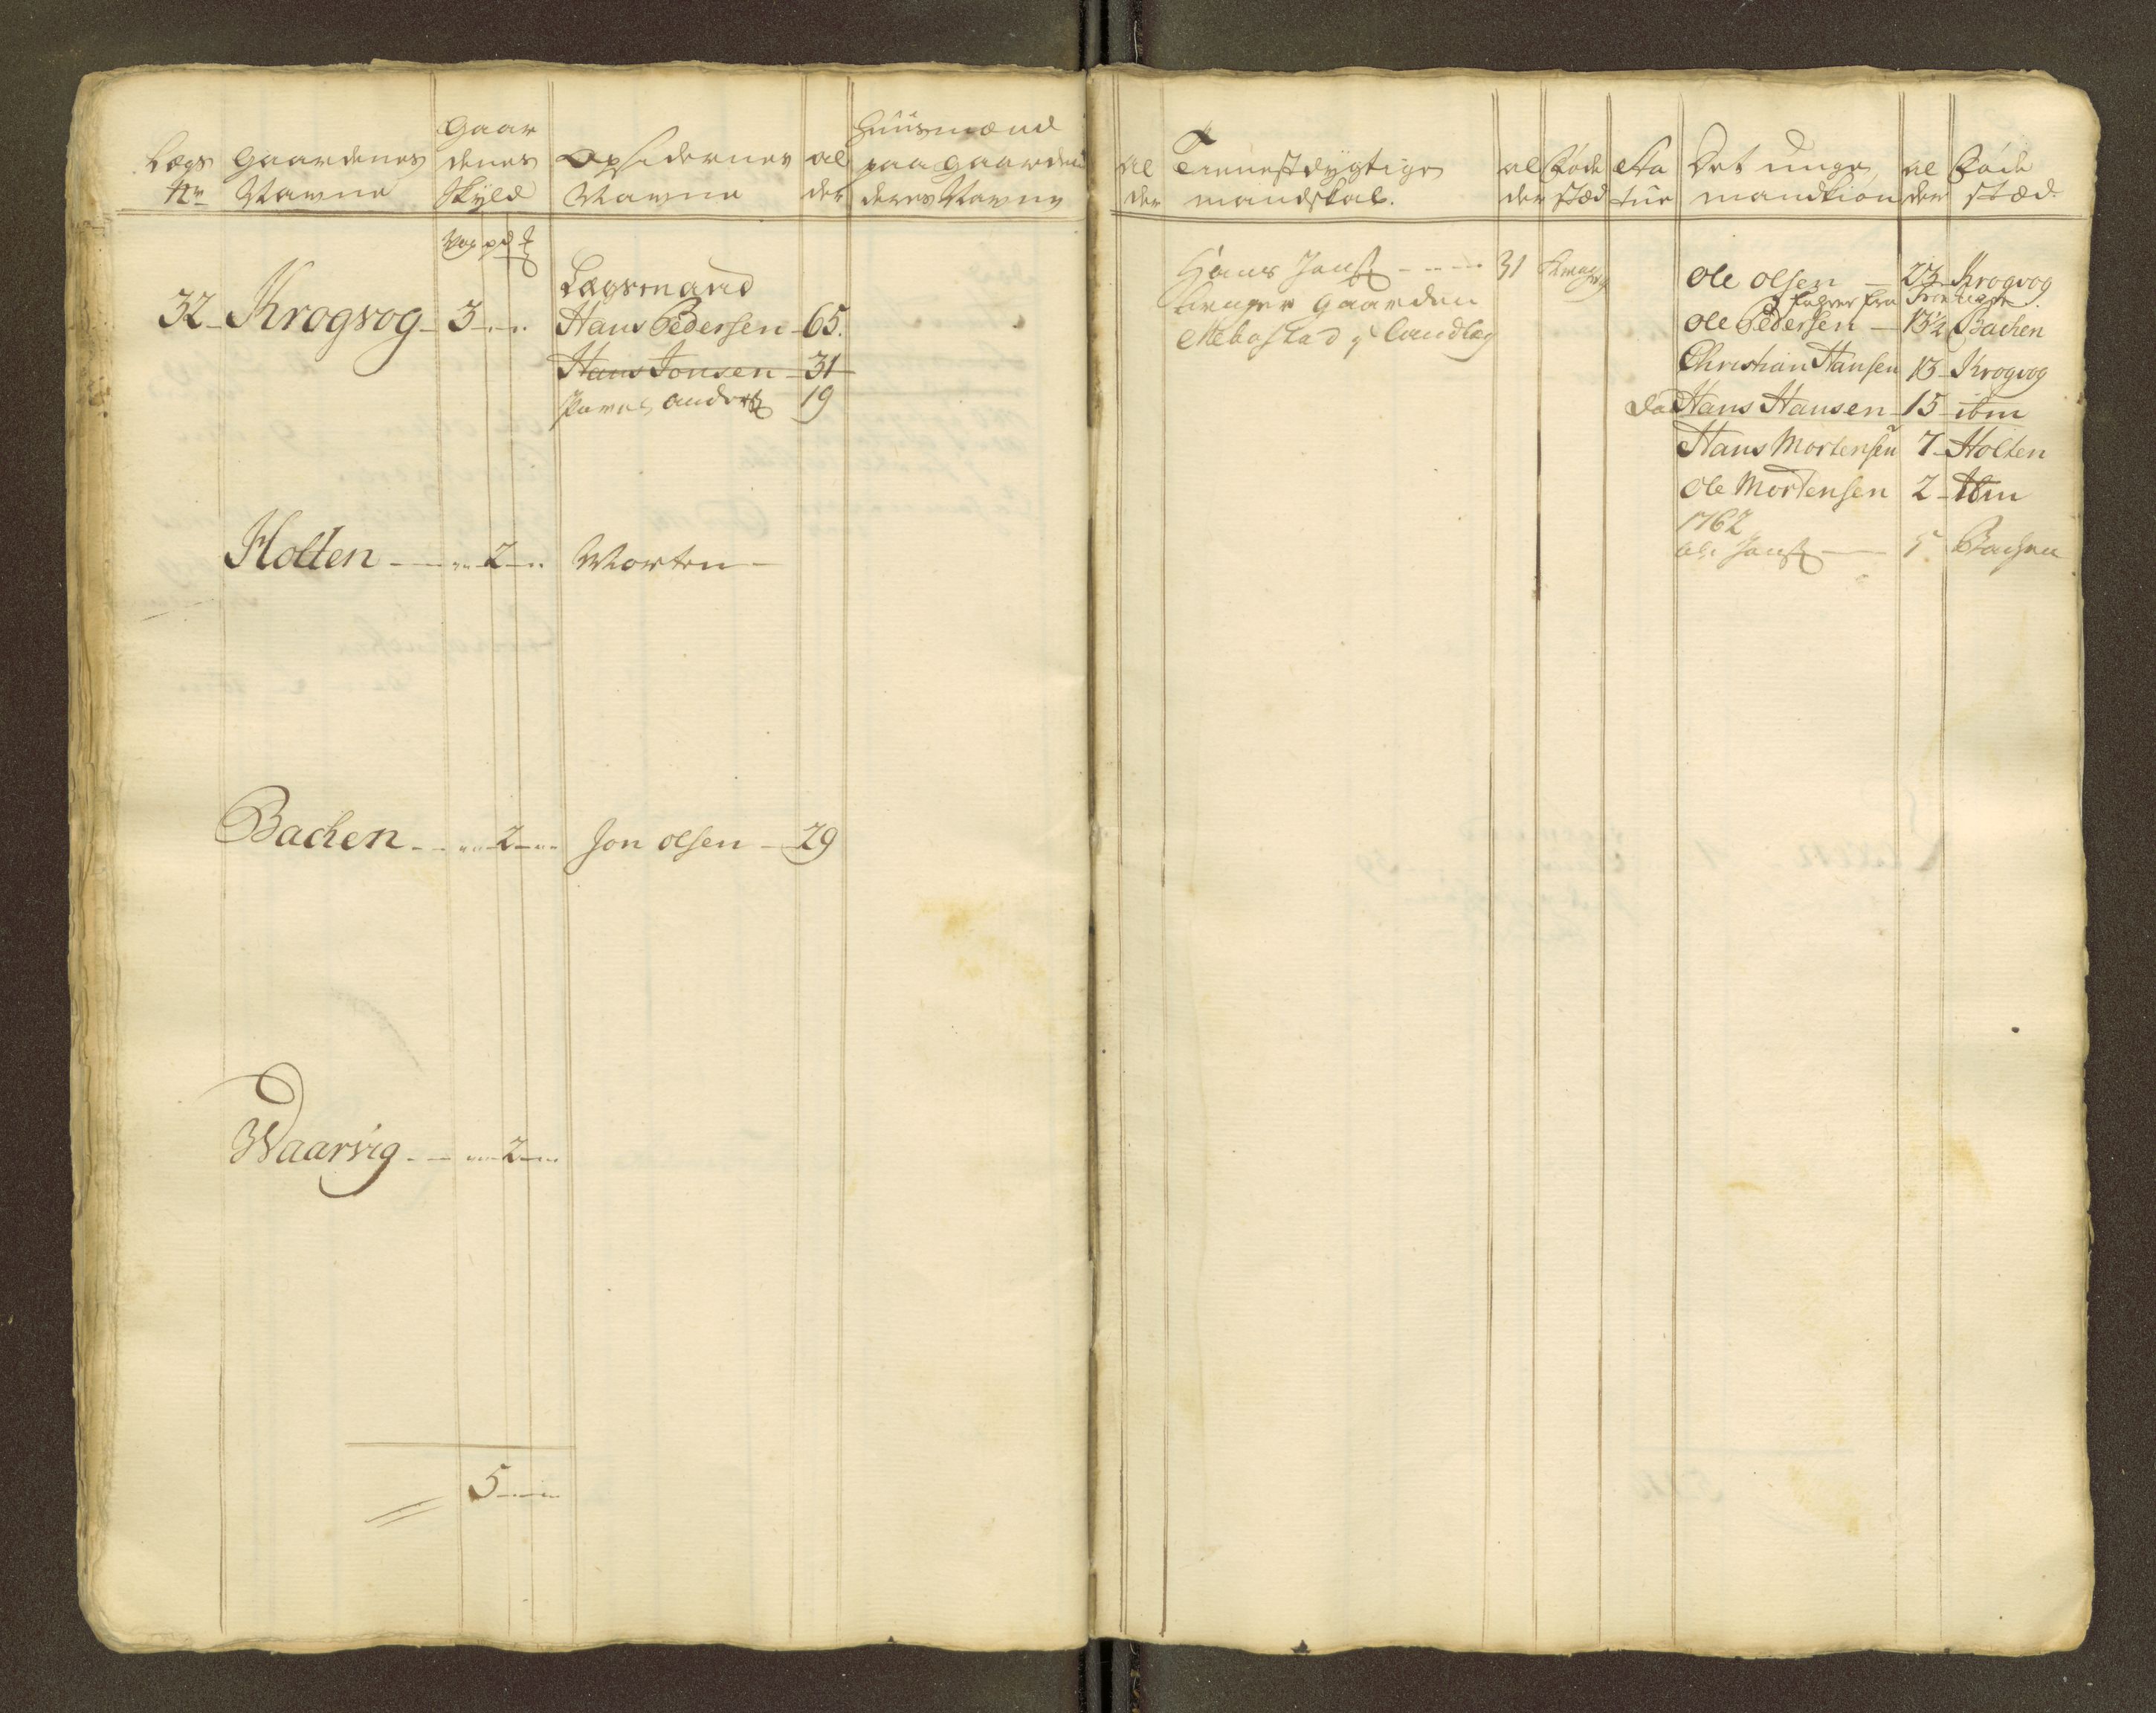 Lægs Nr
Gaardenes Navne
Gaardenes Skyld
Opsidernes Navne
alder
Huusmænd paa Gaarden deres Navne
Vog pd
Lægsmand
32 - Krogvog - 3 - Hans Pedersen - 65.
Hans Jonsen - 31
Anders 19
Holten - 2 - Morten -
Bachen - 2 - Jon olsen - 29
Waarvig - 2
5
alder
Tienestdygtige mandskab.
alder
Føde stæd
Statur
Det unge mandkion
alder
Føde stæd
Hans Jons - 31
Gaarden
Ole olsen - 23 - Krogvog
Ole Pedersen - 13 1/2 Bachen
Christian Hansen 13 - Krogvog
Hans Hansen - 15 - ibm
Hans Mortensen 7 - Holten
Ole Mortensen 2 - Ibm
1762
Ole Jons - 5 Bachen